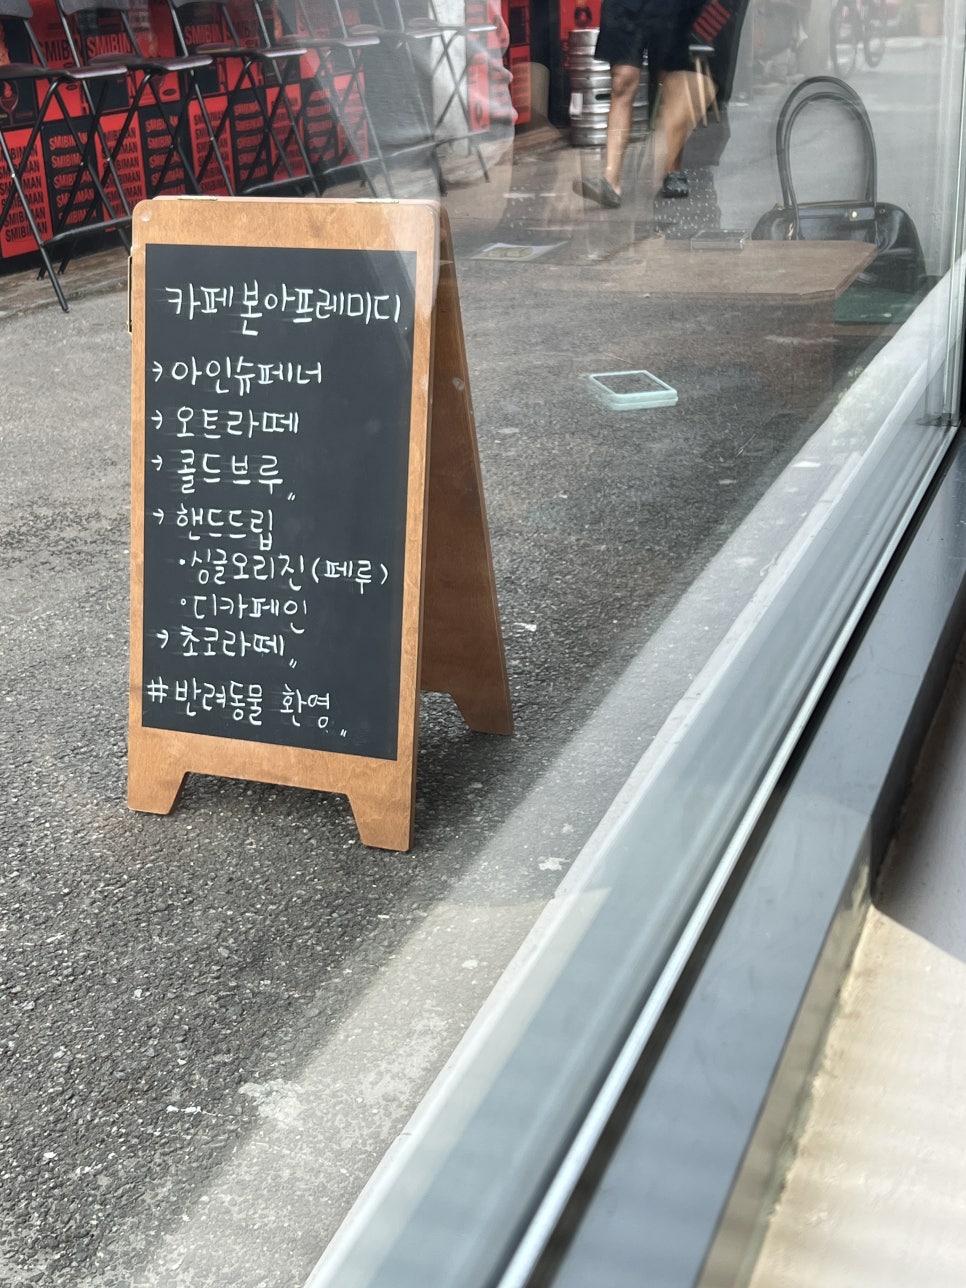 카페본아프레미디
→아인슈페너
→오트라떼
→콜드브루〃
→핸드드립
·싱글오리진(페루)
·디카페인
→초코라떼〃
#반려동물 환영〃
SMIBIMAN